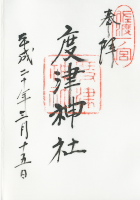 奉拝
佐渡一宮
度津神社
平成二十年三月十五日